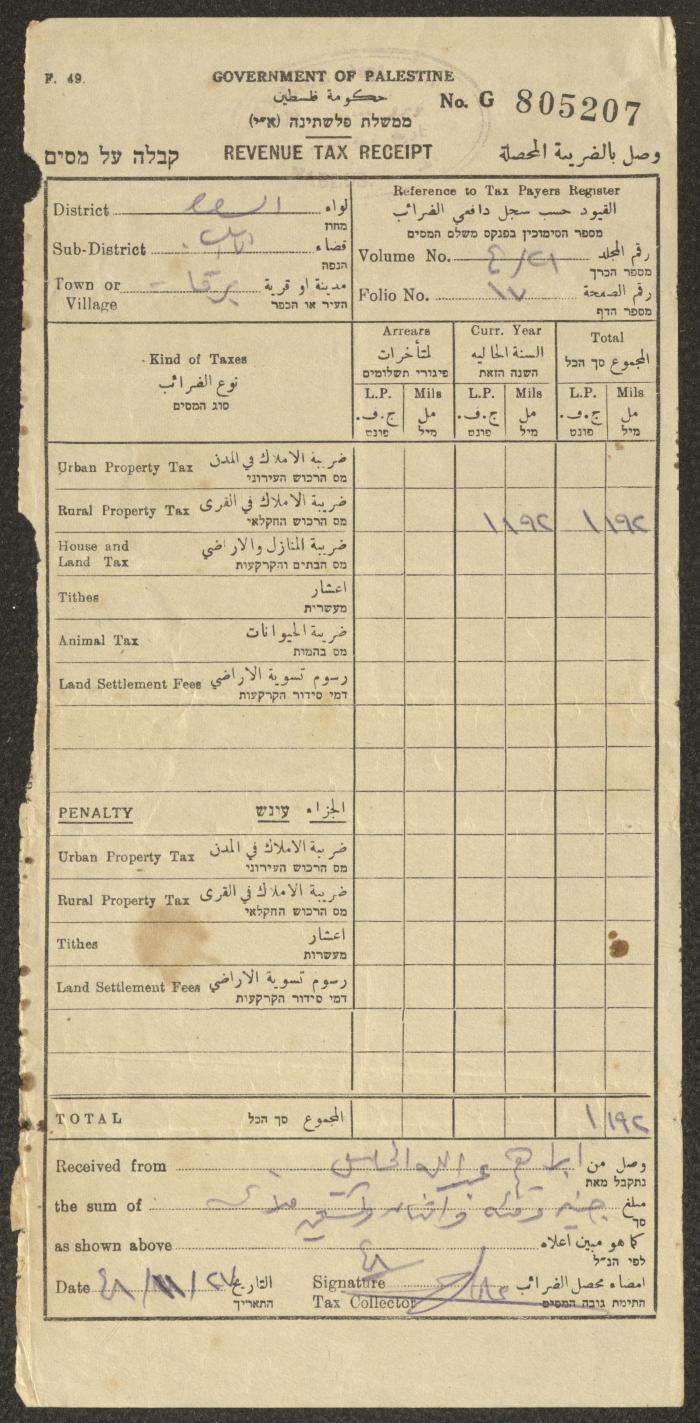 F. 49.
GOVERNMENT OF PALESTINE
حكومة فلسطين
ממשלת פלשתינה (א״י)
No. G 805207
קבלה על מסים
REVENUE TAX RECEIPT
وصل بالضريبة المحصلة
District لواء
מחוז
Sub-District قضاء
הנפה
Town or Village برقا مدينة او قرية
העיר או הכפר
Reference to Tax Payers Register
القيود حسب سجل دافعي الضرائب
מספר הסימוכין בפנקס משלם המסים
Volume No. رقم المجلد
מספר הכרך
Folio No. ١٧ رقم الصفحة
מספר הדף
Kind of Taxes
نوع الضرائب
סוג המסים
Arrears
لمتأخرات
פיגורי תשלומים
Curr. Year
السنة الحاليه
השנה הזאת
Total
المجموع סך הכל
L.P. Mils L.P. Mils L.P. Mils
ج.ف. مل ج.ف. مل ج.ف. مل
פונט מיל פונט מיל פונט מיל
Urban Property Tax ضريبة الاملاك في المدن
מס הרכוש העירוני
Rural Property Tax ضريبة الاملاك في القرى ١ ١٩٢ ١ ١٩٢
מס הרכוש החקלאי
House and Land Tax ضريبة المنازل والاراضي
מס הבתים והקרקעות
Tithes اعشار
מעשרית
Animal Tax ضريبة الحيوانات
מס בהמות
Land Settlement Fees رسوم تسوية الاراضي
דמי סידור הקרקעות
PENALTY עונש الجزاء
Urban Property Tax ضريبة الاملاك في المدن
מס הרכוש העירוני
Rural Property Tax ضريبة الاملاك في القرى
מס הרכוש החקלאי
Tithes اعشار
מעשרות
Land Settlement Fees رسوم تسوية الاراضي
דמי סידור הקרקעות
TOTAL סך הכל المجموع ١ ١٩٢
Received from ابراهيم عبدالله وصل من
נתקבל מאת
the sum of جنيه ومئة واثنان وتسعين ملا مبلغ
סך
as shown above كما هو مبين اعلاه
לפי הנ״ל
Date ٤٨/١١/٢٧ التاريخ
התאריך
Signature امضاء محصل الضرائب
Tax Collector התימת גובה המסים